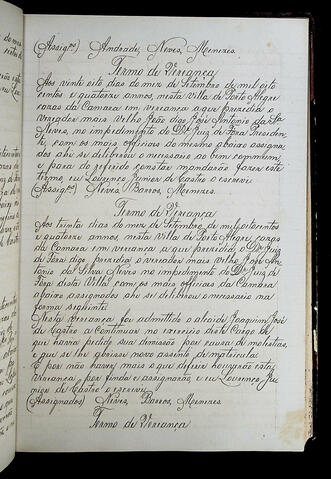 (Assigos) Andrade, Neves, Menezes.
Termo de Vereança
Aos vinte oito dias do mez de Setembro de mil oito
centos e quatorze annos, nesta Villa de Porto Alegre
cazas da Camara em vereança a que prezidio o
vereador mais velho João digo José Antonio da Sa
Neves, no impedimento do Dr. Juiz de Fora Presiden
te, com os mais officiaes do mesmo abaixo assigna
dos ahi se deliberou o necessario ao bem commum,
e para do referido constar mandarão fazer este
termo, eu Lourenço Junior de Castro o escrevi
(Assigos) Neves, Barros, Menezes.
Termo de Vereança
Aos trinta dias do mez de Setembro, de mil oitocentos
e quatorze annos, nesta Villa de Porto Alegre, cazas
da Camara em vereança a que prezidio o Dr. Juiz
de Fora digo prezidio o vereador mais velho José An
tonio da Silva Neves no impedimento do Dr. Juiz de
Fora desta Villa com os mais officiaes da Camara
abaixo assignados ahi se deliberou o necessario na
forma seguinte
Nesta Vereança foi admittido o alcaide Joaquim José
de Castro a Continuar no exercicio deste Cargo de
que havia pedido sua dimissão por causa de molestias,
e que se lhe abrisse novo assento de matricula.
E por não haver mais o que deferir houverão esta
vereança por finda e assignarão, e eu Lourenço Ju
nior de Castro o escrevi
(Assignados) Neves, Barros, Menezes
Termo de Vereança